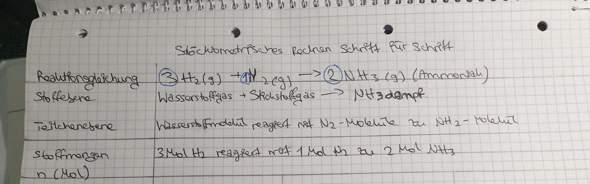 Stöchiometrisches Rechnen Schritt für Schritt
Reaktionsgleichung 3 H2(g) + 1 N2(g) → 2 NH3(g) (Ammoniak)
Stoffebene Wasserstoffgas + Stickstoffgas → NH3dampf
Teilchenebene Wasserstoffmolekül reagiert mit N2-Moleküle zu NH2-Molekül
Stoffmengen 3 Mol H2 reagiert mit 1 Mol N2 zu 2 Mol NH3
n (Mol)